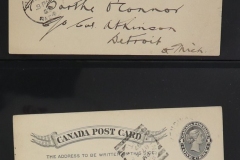 Barthe O'Connor
c/o Col Atkinson
Detroit
Mich
CANADA POST CARD
THE ADDRESS TO BE WRITTEN ON THIS SIDE